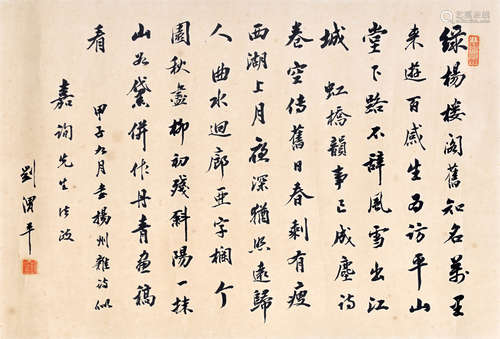 绿楊楼阁舊知名萬里
来遊百感生為访平山
堂下路不辞風雪出江
城 虹橋韻事已成塵詩
卷空傳舊日春剩有瘦
西湖上月夜深猶照遠歸
人 曲水迴廊亚字欄个
園秋盡柳初残斜陽一抹
山如黛併作丹青畫稿
看 甲子九月去楊州雜诗似
嘉詢先生法政
劉渭平